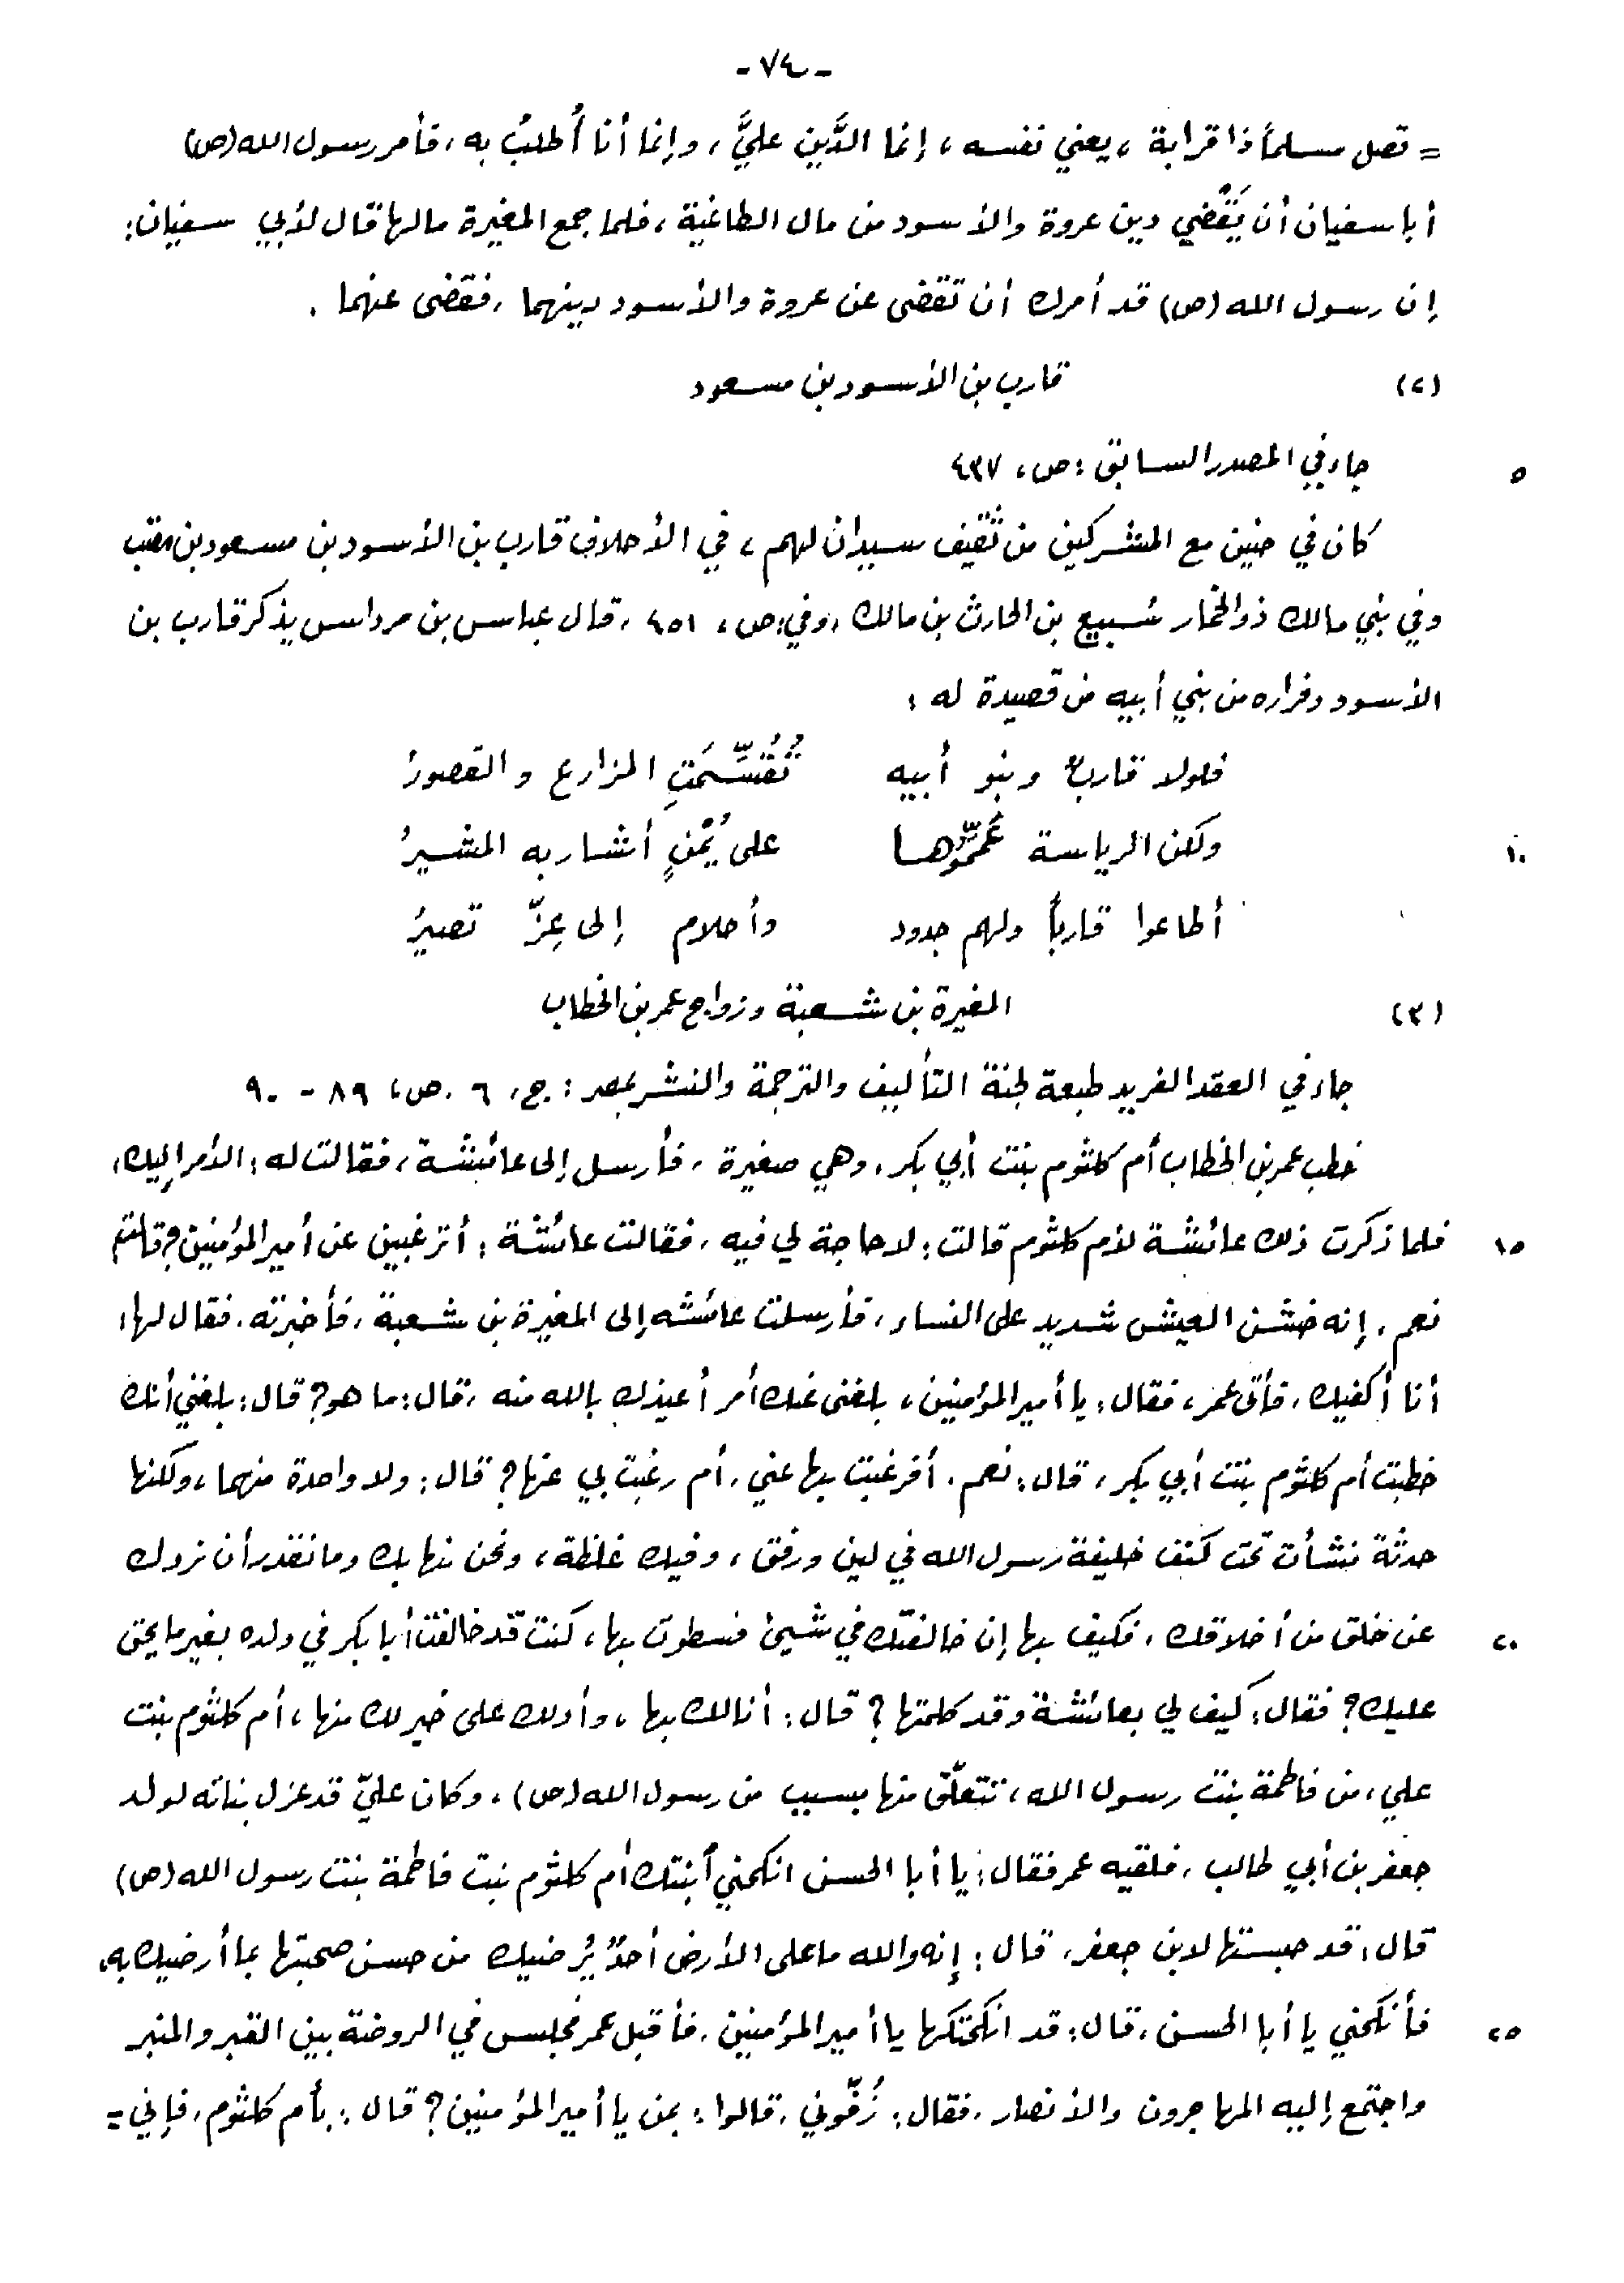 -٧٤-
= تصل مسلماً ذا قرابة، يعني نفسه، إنما الدَّين عليَّ، وإنما أنا أُطلبُ به، فأمر رسول الله (ص)
أبا سفيان أن يَقْضي دين عروة والأسود من مال الطاغية، فلما جمع المغيرة مالها قال لأبي سفيان:
إن رسول الله (ص) قد أمرك أن تقضى عن عروة والأسود دينهما، فقضى عنهما.
(٢) قارب بن الأسود بن مسعود
٥ جاء في المصدر السابق: ص، ٤٣٧
كان في حنين مع المشركين من ثقيف سيدان لهم، في الأحلاف قارب بن الأسود بن مسعود بن معتب
وفي بني مالك ذو الخمار سُبيع بن الحارث بن مالك، وفي: ص، ٤٥١، قال عباس بن مرداس يذكر قارب بن
الأسود وفراره من بني أبيه من قصيدة له:
فلولا قاربٌ وبنو أبيه تُقُسِّمَتِ المزارع والقصورُ
١٠ ولكن الرياسة عُمِّمُوها على يُمْنٍ أشار به المشيرُ
أطاعوا قارباً ولهم جدود وأحلام إلى عِزّ تصيرُ
(٣) المغيرة بن شعبة وزواج عمر بن الخطاب
جاء في العقد الفريد طبعة لجنة التأليف والترجمة والنشر بمصر: ج، ٦ ص، ٨٩ - ٩٠
خطب عمر بن الخطاب أم كلثوم بنت أبي بكر، وهي صغيرة، فأرسل إلى عائشة، فقالت له: الأمر إليك،
١٥ فلما ذكرت ذلك عائشة لأم كلثوم قالت: لا حاجة لي فيه، فقالت عائشة: أترغبين عن أمير المؤمنين؟ قالت:
نعم، إنه خشن العيش شديد على النساء، فأرسلت عائشه إلى المغيرة بن شعبة، فأخبرته، فقال لها:
أنا أكفيك، فأتى عمر، فقال: يا أمير المؤمنين، بلغنى عنك أمر أعيذك بالله منه، قال: ما هو؟ قال: بلغني أنك
خطبت أم كلثوم بنت أبي بكر، قال: نعم، أفرغبت بها عني، أم رغبت بي عنها؟ قال: ولا واحدة منهما، ولكنها
حدثة نشأت تحت كنف خليفة رسول الله في لين ورفق، وفيك غلظة، ونحن نهابك وما نقدر أن نردك
٢٠ عن خلق من أخلاقك، فكيف بها إن خالفتك في شيئ فسطوت بها، كنت قد خالفت أبا بكر في ولده بغير ما يحق
عليك؟ فقال: كيف لي بعائشة وقد كلمتها؟ قال: أنا لك بها، وأدلك على خير لك منها، أم كلثوم بنت
علي، من فاطمة بنت رسول الله، تتعلّق منها بسبب من رسول الله (ص)، وكان عليّ قد عزل بناته لولد
جعفر بن أبي طالب، فلقيه عمر فقال: يا أبا الحسن انكحني أبنتك أم كلثوم بنت فاطمة بنت رسول الله (ص)
قال: قد حبستها لابن جعفر، قال: إنه والله ما على الأرض أحدٌ يُرضيك من حسن صحبتها بما أرضيك به،
٢٥ فأنكحني يا أبا الحسن، قال: قد انكحتكها يا أمير المؤمنين، فأقبل عمر فجلس في الروضة بين القبر والمنبر
واجتمع إليه المهاجرون والأنصار، فقال: زُفّوني، قالوا: بمن يا أمير المؤمنين؟ قال: بأم كلثوم، فإني =